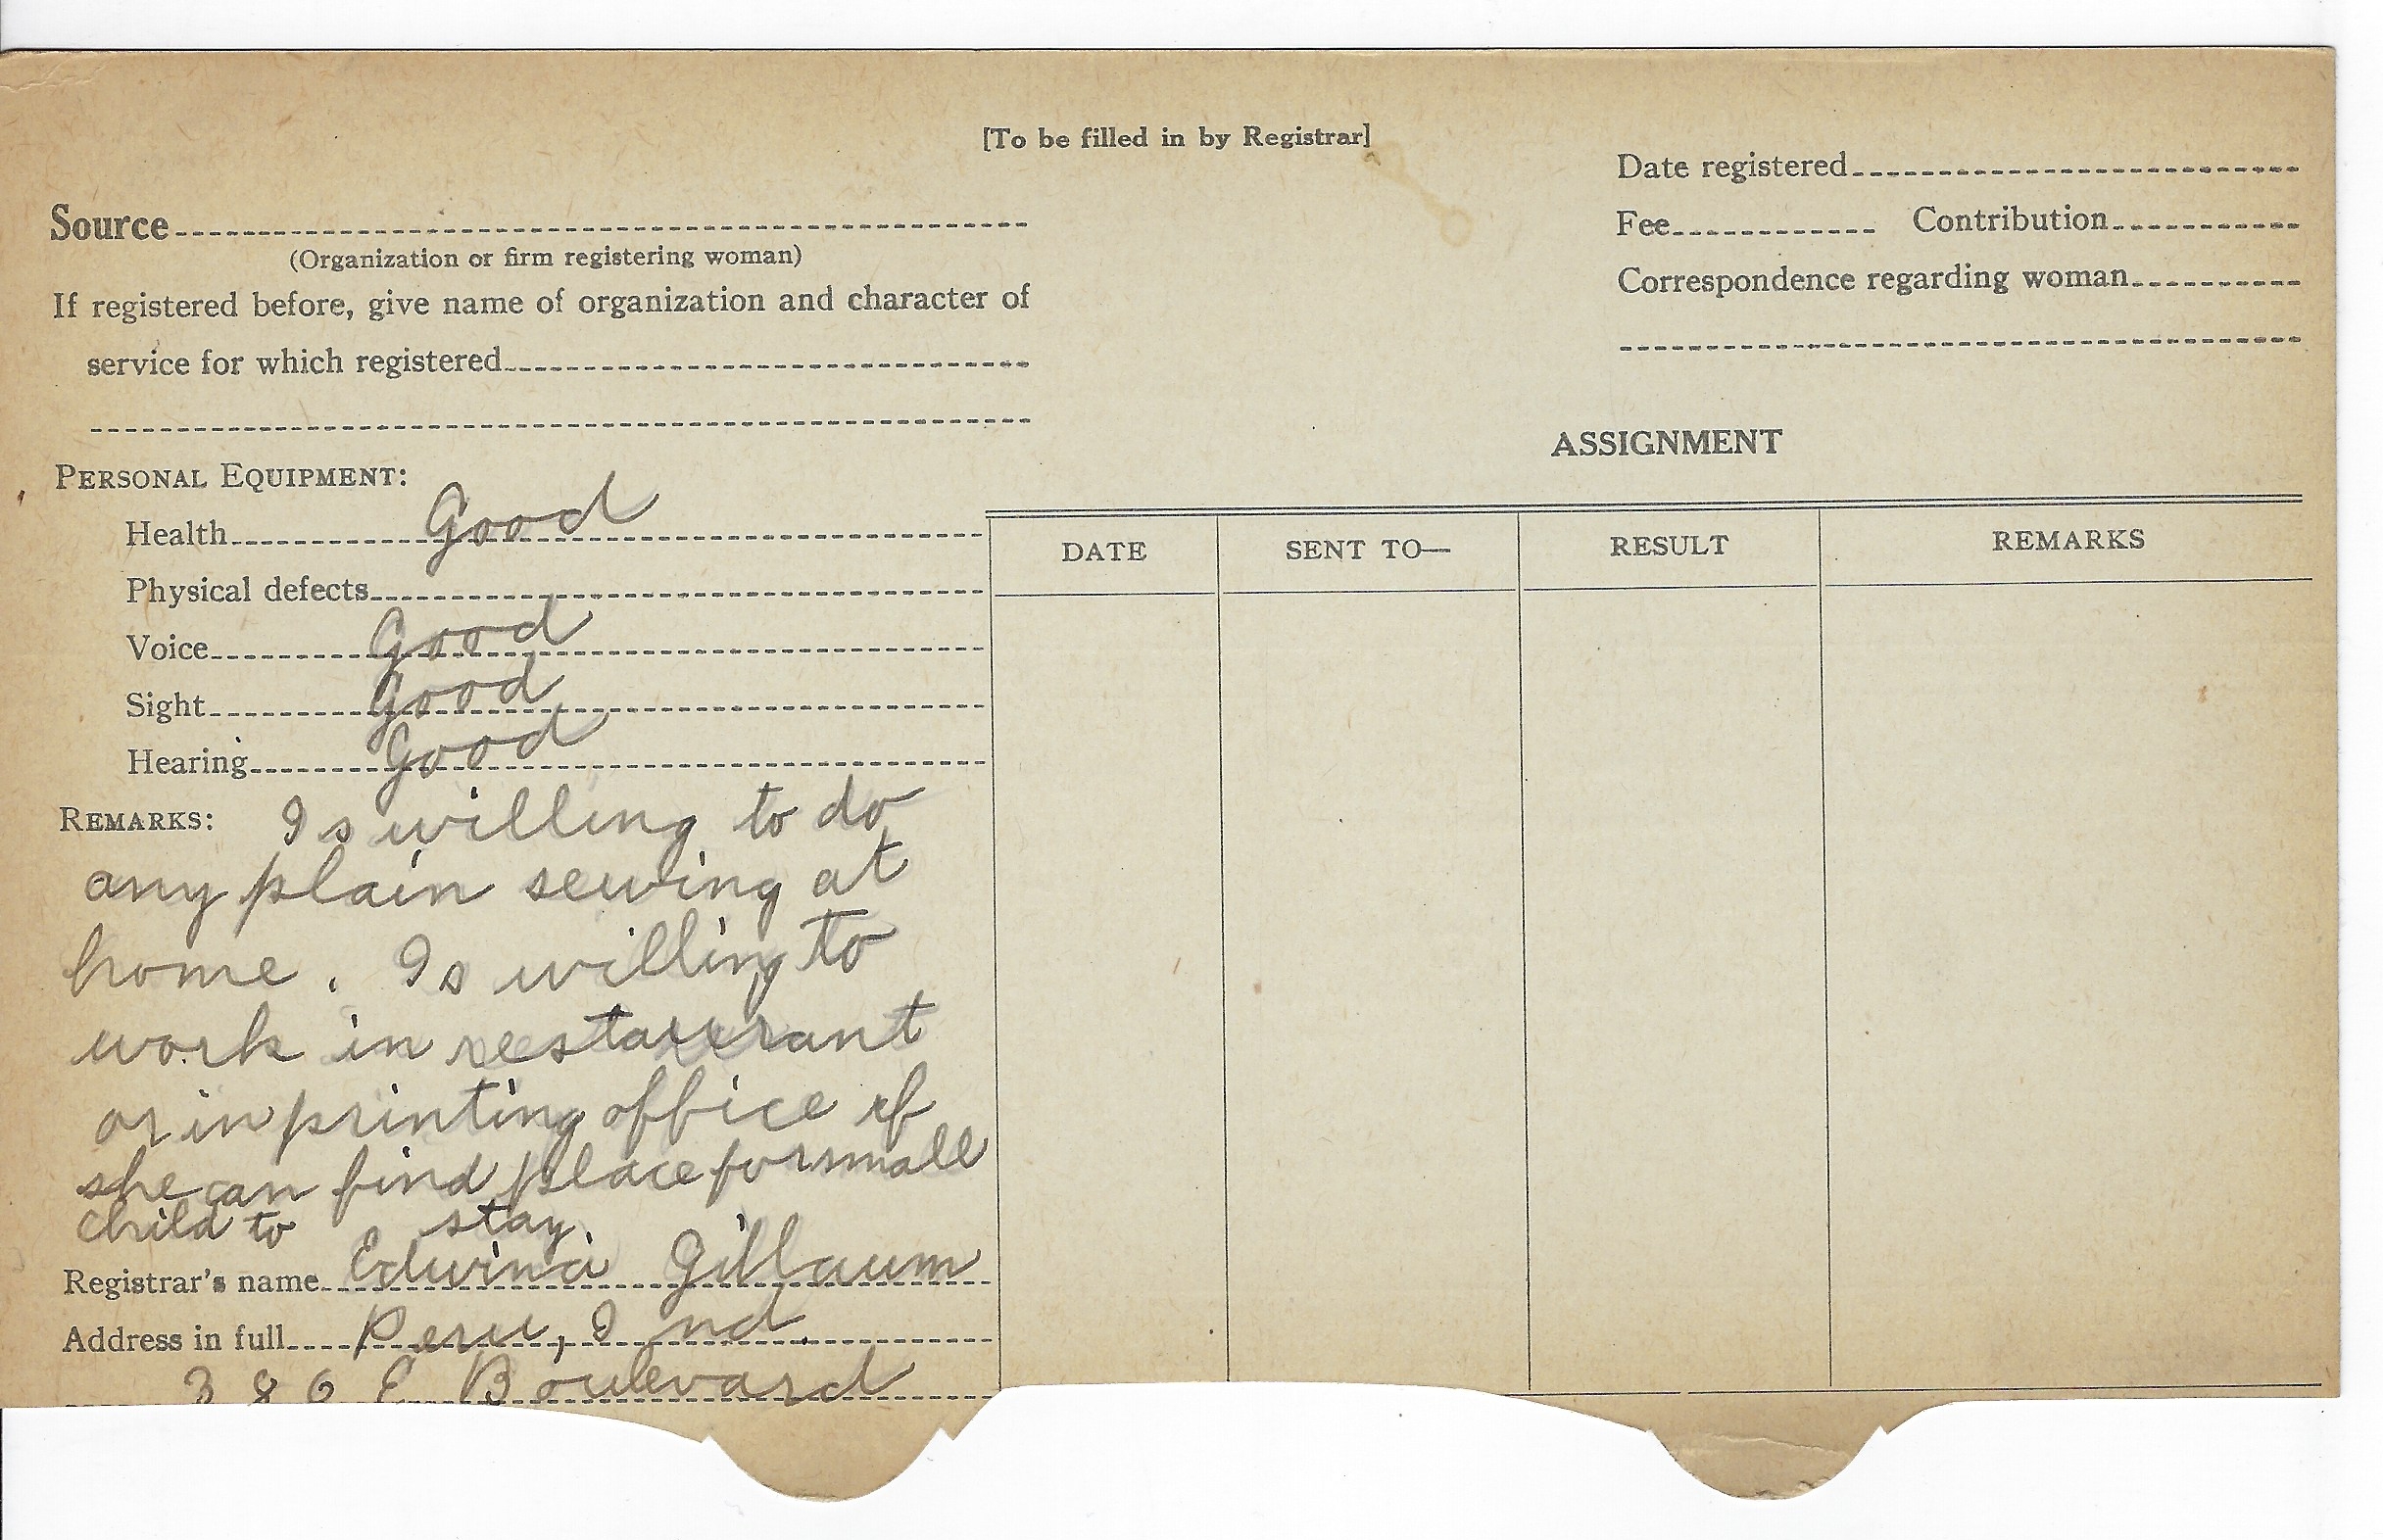 [To be filled in by Registrar]
Date registered
Source
Fee Contribution
(Organization or firm registering woman)
Correspondence regarding woman
If registered before, give name of organization and character of
service for which registered
ASSIGNMENT
PERSONAL EQUIPMENT:
Health Good
Physical defects
Voice Good
Sight Good
Hearing Good
DATE SENT TO— RESULT REMARKS
REMARKS: Is willing to do
any plain sewing at
home. Is willing to
work in restaurant
or in printing office if
she can find place for small
child to stay.
Registrar's name Edwina Gillaum
Address in full Peru, Ind.
386 E. Boulevard